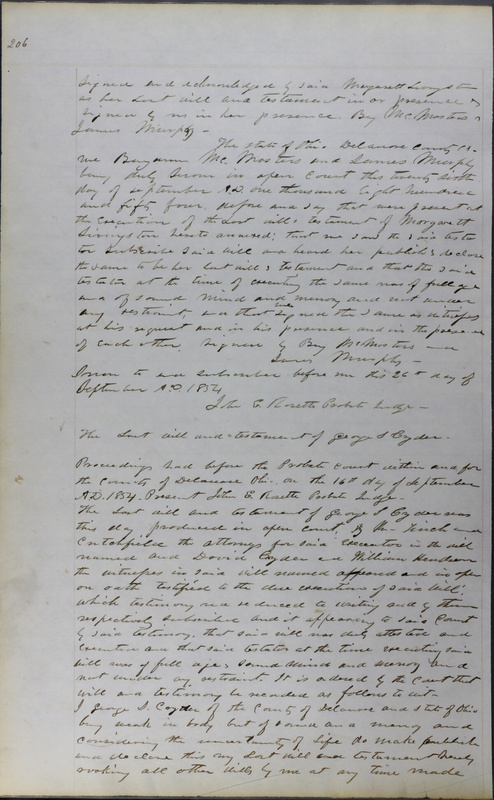 206
Signed and acknowledged by said Margarett Livingston
as her Last will and testament in or presence &
signed by us in her presence. Benj Mc Masters
James Murphy —
The State of Ohio Delaware County ss.
we Benjamin Mc Masters and James Murphy
being duly sworn in open Court this twenty sixth
day of september A.D. one thousand Eight hundred
and fifty four, depose and say that were present at
the execution of the Last will & testament of Margarett
Livingston hereto annexed; that we saw the said testa
tor subscribe said will and heard her publish & declare
the same to be her Last will & testament and that the said
testator at the time of executing the same was of full age
and of sound mind and memory and not under
any restraint, and that we signed the same as witnesses
at his request and in his presence and in the presence
of each other. Signed Benj Mc Masters and
James Murphy —
Sworn to and subscribed before me this 26th day of
September A.D. 1854
John E. Rosette Probate Judge —
The Last will and testament of george S Cryder.
Proceedings had before the Probate Court within and for
the County of Delaware Ohio. on the 16th day of September
A.D. 1854. Present John E Rosette Probate Judge.
The Last will and testament of george S Cryder was
this day produced in open court, by and
Critchfield the attorneys for said executor in the will
named and David Cryder and William Henderson
the witnesses in said will named appeared and in open
on oath testified to the due execution of said will;
which testimony was reduced to writing and by them
respectively subscribed and it appearing to said Court
by said testimony, that said will was duly attested and
executed and that said testator at the time executing said
will was of full age, sound mind and memory and
not under any restraint. It is ordered by the Court that
will and testimony be recorded as follows to wit—
I george S. Cryder of the County of Delaware and state of Ohio
being weak in body but of sound and memory and
considering the uncertainty of Life do make publish
and declare this my Last will and testament hereby
revoking all other wills by me at any time made